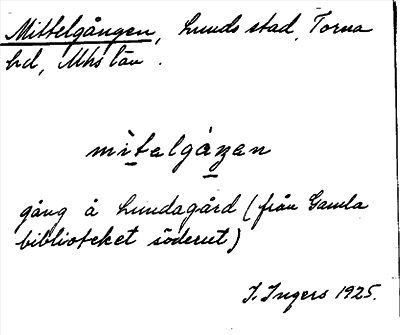 Mittelgången, Lunds stad, Torna
hd, Mhs län.
mìtalgáŋen
gång å Lundagård (från Gamla
biblioteket söderut)
I. Ingers 1925.